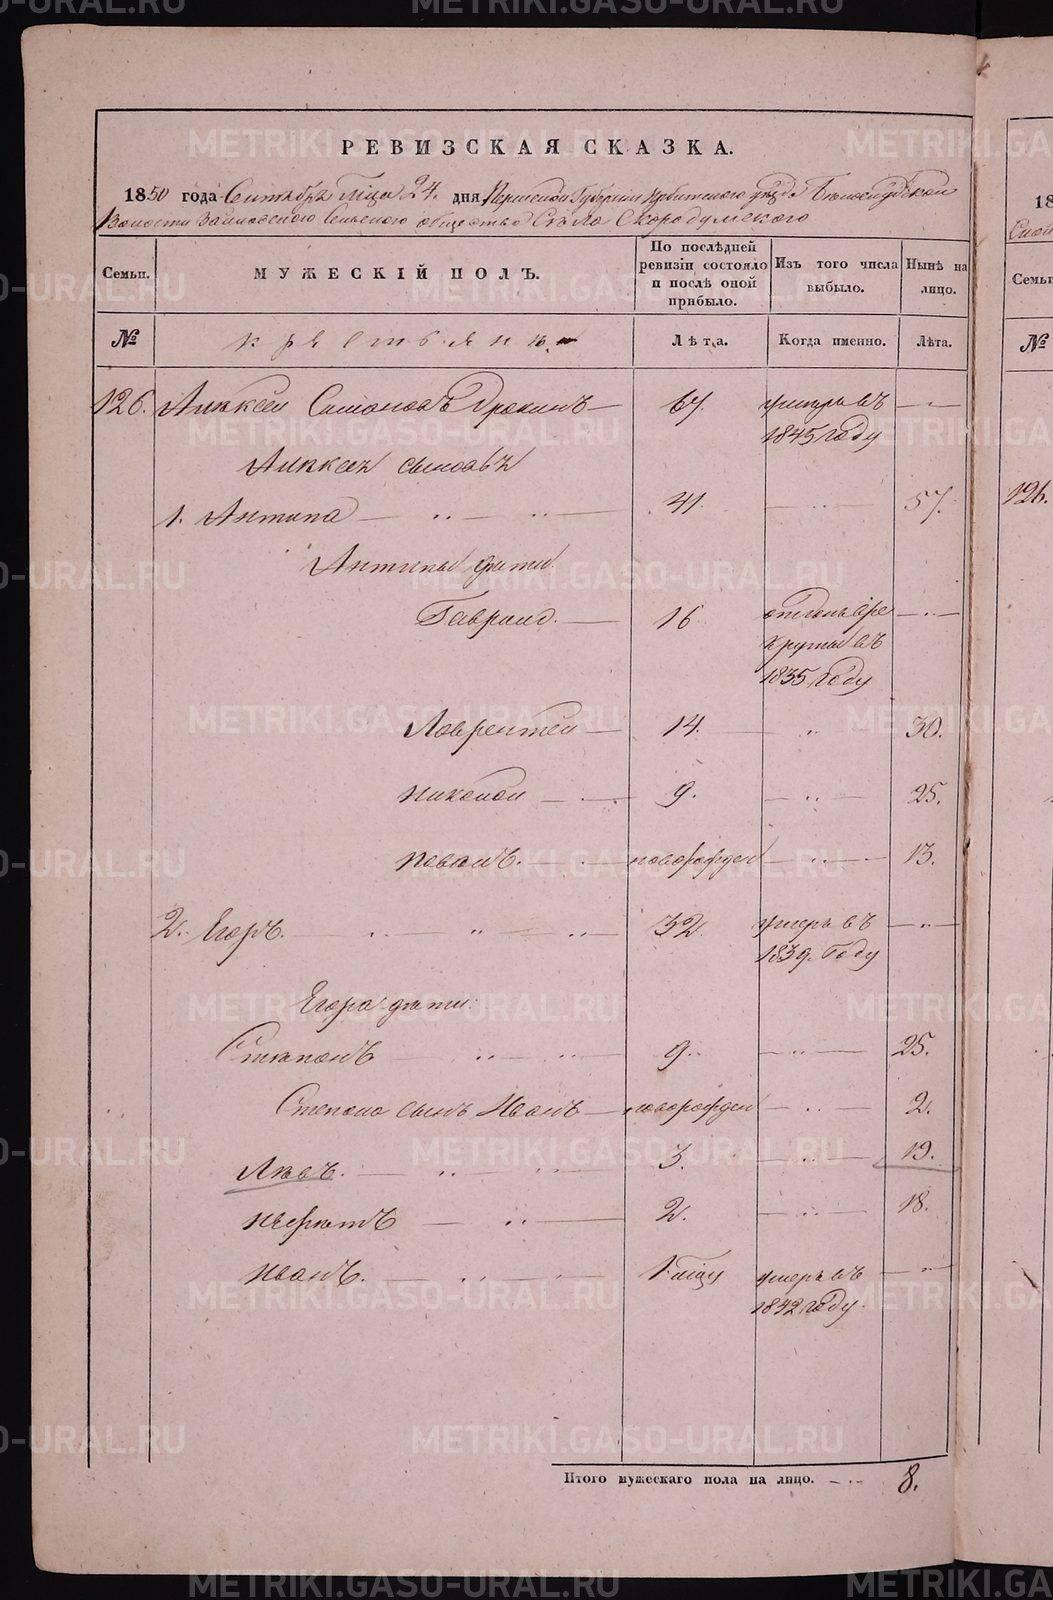 METRIKI.GASO-URAL.RU
РЕВИЗСКАЯ СКАЗКА.
1850 года Сентября мѣсяца 24. дня Пермской Губерніи Ирбитского уѣзда Бѣлослудской
Волости Зайковского Сельского общества Села Скородумского
Семьи. МУЖЕСКІЙ ПОЛЪ. По послѣдней ревизіи состояло и послѣ оной прибыло. Изъ того числа выбыло. Нынѣ на лицо.
№ крестьянъ. Лѣта. Когда именно. Лѣта.
126. Алексѣй Симоновъ — 67. умеръ въ 1845 году — " —
Алексѣя сыновья
1. Антипа — " — " — 41. — " — 57.
Антипы дѣти
Гаврило. — 16 отданъ въ рекруты въ 1835 году — " —
Лаврентей — 14. — " — 30.
Николай — " — 9. — " — 25.
Павелъ. — " — новорожден — " — 13.
2. Егоръ. — " — " — 32. умеръ въ 1839. году — " —
Егора дѣти:
Степанъ — " — " — 9. — " — 25.
Степана сынъ Иванъ — новорожден — " — 2.
Левъ. — " — " — 3. — " — 19.
— " — 2. — " — 18.
Иванъ. — " — " — 1 мѣсяц умеръ въ 1842 году. — " —
Итого мужескаго пола на лицо. — " — 8.
18
Семьи
№
126.